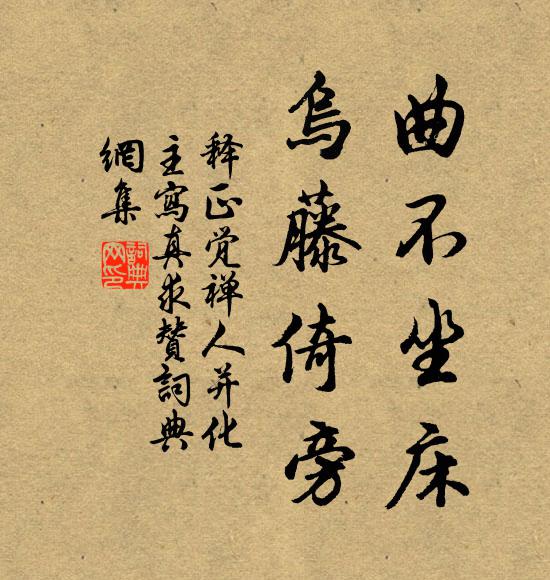 曲不坐床
乌藤倚旁
释正觉禅人并化
主写真求赞词典
网集
词典网印